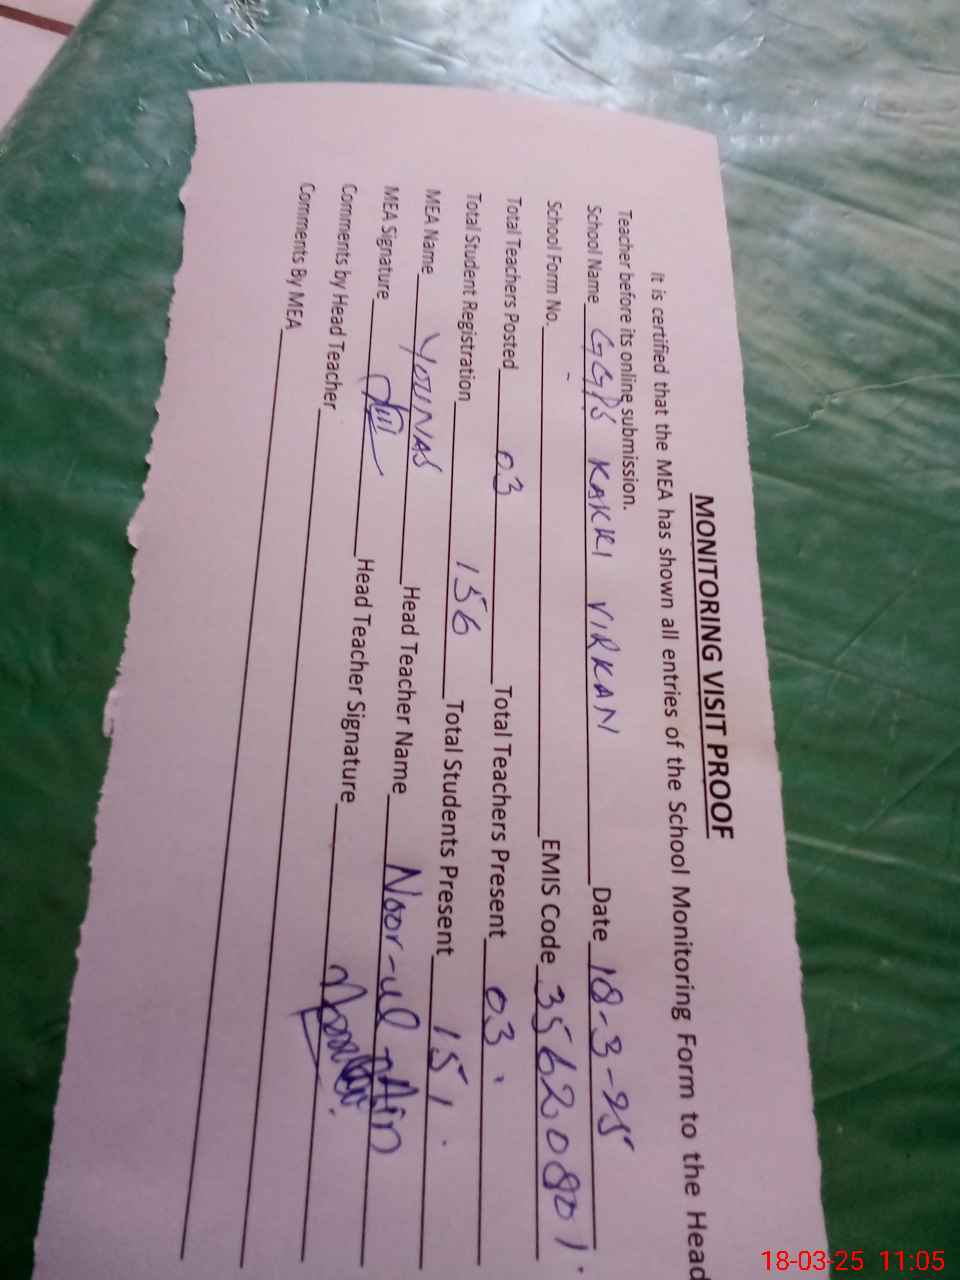 MONITORING VISIT PROOF
It is certified that the MEA has shown all entries of the School Monitoring Form to the Head
Teacher before its online submission.
School Name GGPS KAKKI VIRKAN Date 18-3-25
School Form No. EMIS Code 35620801
Total Teachers Posted 03 Total Teachers Present 03
Total Student Registration 156 Total Students Present 151
MEA Name YOUNAS Head Teacher Name Noor-ul-Ain
MEA Signature Head Teacher Signature
Comments by Head Teacher
Comments By MEA
18-03-25 11:05